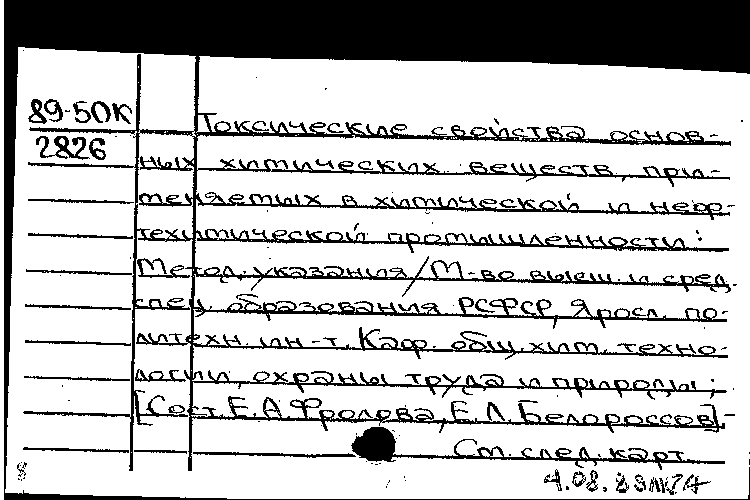 89-50К
2826
Токсические свойства основ-
ных химических веществ, при-
меняемых в химической и неф-
техимической промышленности:
Метод. указания/М-во высш. и сред.
спец. образования РСФСР, Яросл. по-
литехн. ин-т. Каф. общ. хим. техно-
логии, охраны труда и природы;
[Сост. Е.А.Фролова, Е.Л.Белороссов].-
См. след. карт.